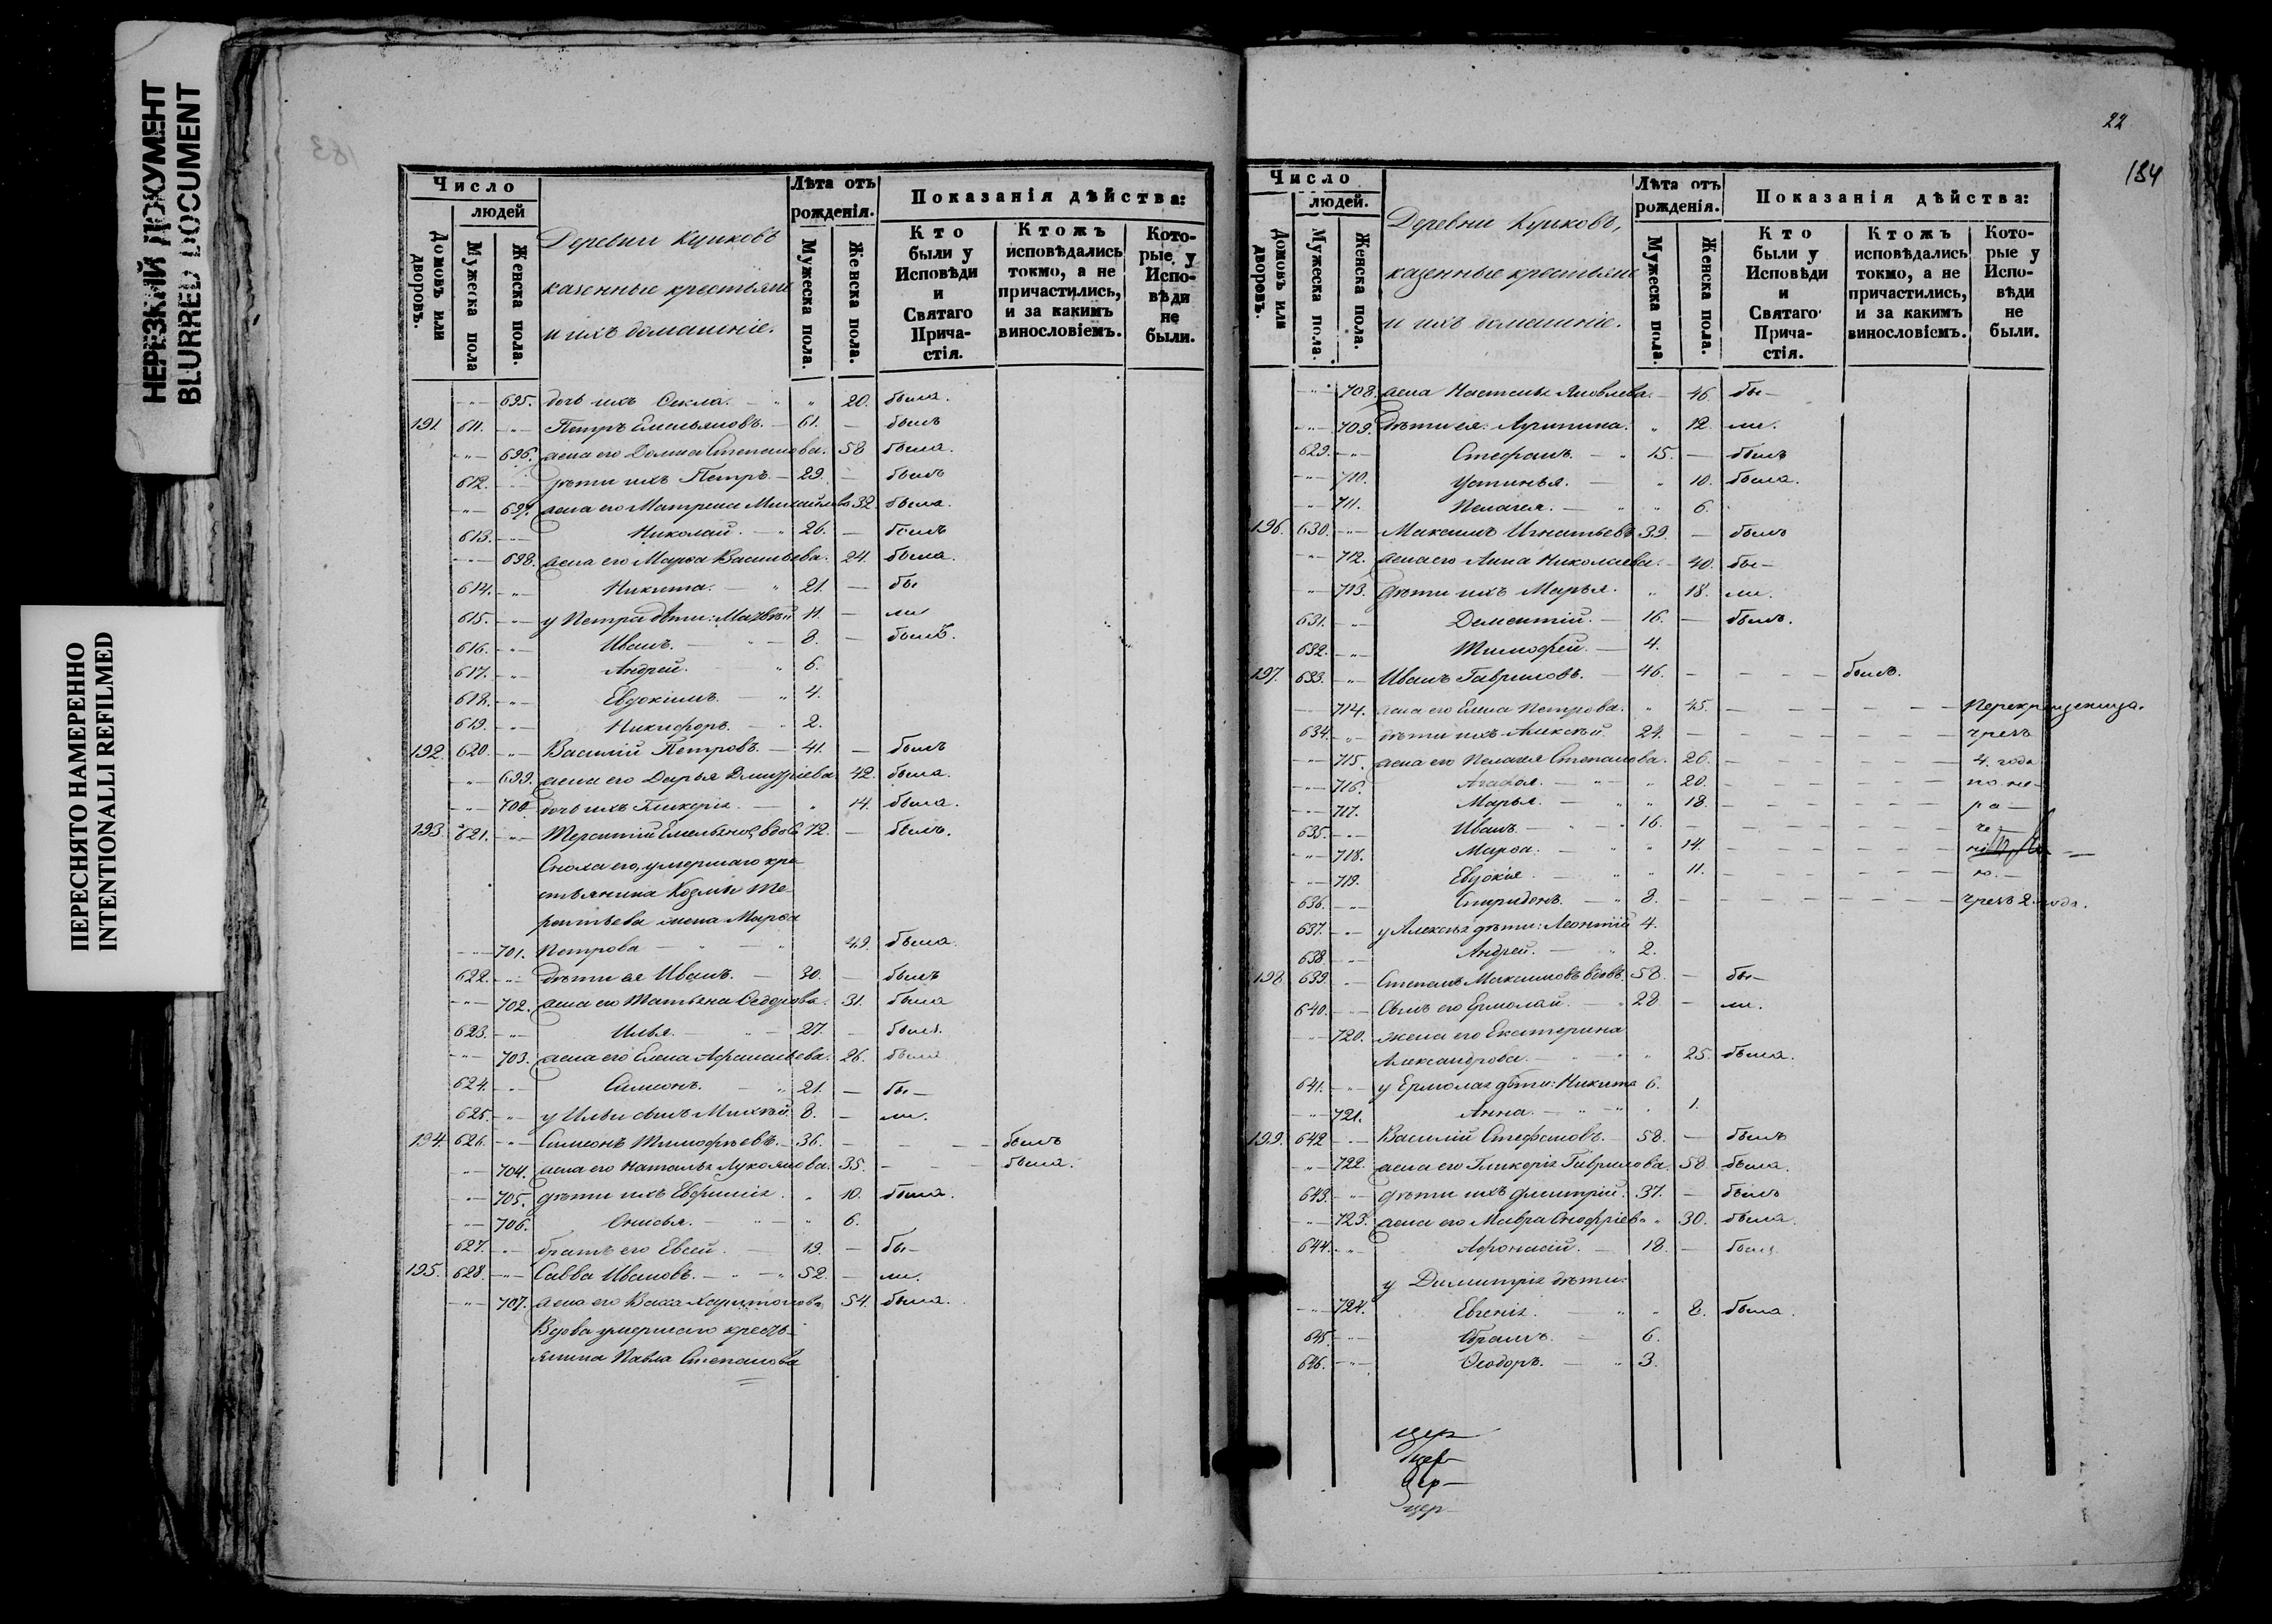 НЕРЕЗКИЙ ДОКУМЕНТ
BLURRED DOCUMENT
ПЕРЕСНЯТО НАМЕРЕННО
INTENTIONALLI REFILMED
Число
людей
Домовъ или дворовъ.
Мужеска пола
Женска пола.
Деревни Куиковъ
казенные крестьяне
и ихъ домашніе.
Лѣта отъ рожденія.
Мужеска пола.
Женска пола.
Показанія дѣйства:
Кто были у Исповѣди и Святаго Прича-стія.
Ктожъ исповѣдались токмо, а не причастились, и за какимъ винословіемъ.
Кото-рые у Испо-вѣди не были.
695. дочь ихъ Ѳекла. 20. была.
191. 611. Петръ Емельяновъ. 61. — былъ
696. жена его Домна Степанова. 58 была.
612. дѣти ихъ Петръ. 29. — былъ
697. жена его Матрена Михайлова 32. была.
613. Николай. 26. — былъ
698. жена его Марѳа Васильева. 24. была.
614. Никита. 21. — бы
615. у Петра дѣти: Матвѣй 11. — ли
616. Иванъ. 8. — былъ.
617. Андрей. 6.
618. Евдокимъ. 4.
619. Никифоръ. 2.
192. 620. Василій Петровъ. 41. — былъ
699. жена его Дарья Дмитріева 42. была.
700 дочь ихъ Гликерія. 14. была.
193. 621. Терентій Емельяновъ вдовъ 72. — былъ.
Сноха его, умершаго кре
стьянина Козмы Те-
рентьева жена Марѳа
701. Петрова 49. была.
622. дѣти ея Иванъ. 30. — былъ
702. жена его Татьяна Ѳедорова. 31. была
623. Илья. 27. — былъ.
703. жена его Елена Афанасьева. 26. была
624. Симеонъ. 21. — бы —
625. у Ильи сынъ Михѣй 8. — ли.
194. 626. Симеонъ Тимофѣевъ. 36. — былъ
704. жена его Наталья Лукоянова. 35. — была.
705. дѣти ихъ Евфимія. 10. была.
706. Онисья. 6.
627. братъ его Евсей. 19. — бы —
195. 628. Савва Ивановъ. 52. — ли.
707. жена его Васса Харитонова 54. была.
Вдова умершаго кресть-
янина Павла Степанова
22
184
Число
людей.
Домовъ или дворовъ.
Мужеска пола.
Женска пола.
Деревни Куиковъ,
казенные крестьяне
и ихъ домашніе.
Лѣта отъ рожденія.
Мужеска пола.
Женска пола.
Показанія дѣйства:
Кто были у Исповѣди и Святаго Прича-стія.
Ктожъ исповѣдались токмо, а не причастились, и за какимъ винословіемъ.
Кото-рые у Испо-вѣди не были.
708. жена Наталья Яковлева. 46. бы —
709. дѣти ея: Агрипина. 12. ли.
629. Стефанъ. 15. — былъ
710. Устинья. 10. была.
711. Пелагея. 6.
196. 630. Максимъ Игнатьевъ 39. — былъ
712. жена его Анна Николаева. 40. бы —
713. дѣти ихъ Марья. 18. ли.
631. Дементій. 16. — былъ.
632. Тимофей. 4.
197. 633. Иванъ Гавриловъ. 46. — былъ.
714. жена его Елена Петрова. 45. — Перекрещеница.
634. дѣти ихъ Алексѣй. 24. — чрезъ
715. жена его Пелагея Степанова. 26. — 4. года
716. Агафья. 20. — по не-
717. Марья. 18. — ра —
635. Иванъ. 16. —
718. Марѳа. 14. —
719. Евдокія. 11. — ю. —
636. Спиридонъ. 8. — чрезъ 2. года.
637. у Алексѣя дѣти: Леонтій 4.
638 Андрей. 2.
198 639. Степанъ Максимовъ вдовъ. 58. — бы —
640. Сынъ его Ермолай. 28 — ли.
720. жена его Екатерина
Александрова. 25. была.
641. у Ермолая дѣти: Никита 6.
721. Анна. 1.
199. 642 Василій Стефановъ. 58. — былъ
722. жена его Гликерія Гаврилова. 58. была.
643. дѣти ихъ Дмитрій. 37. — былъ
723. жена его Мавра Онофріева 30. была.
644. Афонасій. 18. — былъ
у Димитрія дѣти:
724. Евгенія. 8. была.
645. Абрамъ. 6.
646. Ѳеодоръ. 3.